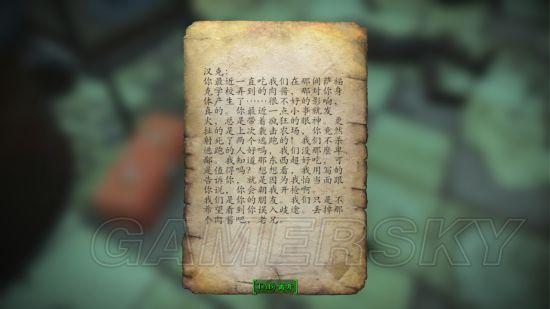 汉克：
你最近一直吃我们在那间萨福
克学校弄到的肉酱，那对你身
体产生了……很不好的影响，
真的。你最近一点小事就发
火，总是带着疯狂的眼神。更
扯的是上次袭击农场，你竟然
射死了两个逃跑的！我们不杀
逃跑的人好吗，我们没那麽卑
鄙。我知道那东西超好吃，可
是值得吗？想想看，我用写的
告诉你，就是因为我怕当面跟
你说，你会朝我开枪啊。
我们是你的朋友。我们只是不
希望看到你误入歧途。丢掉那
个肉酱吧，老兄。
GAMERSKY
[TAB) 离开]